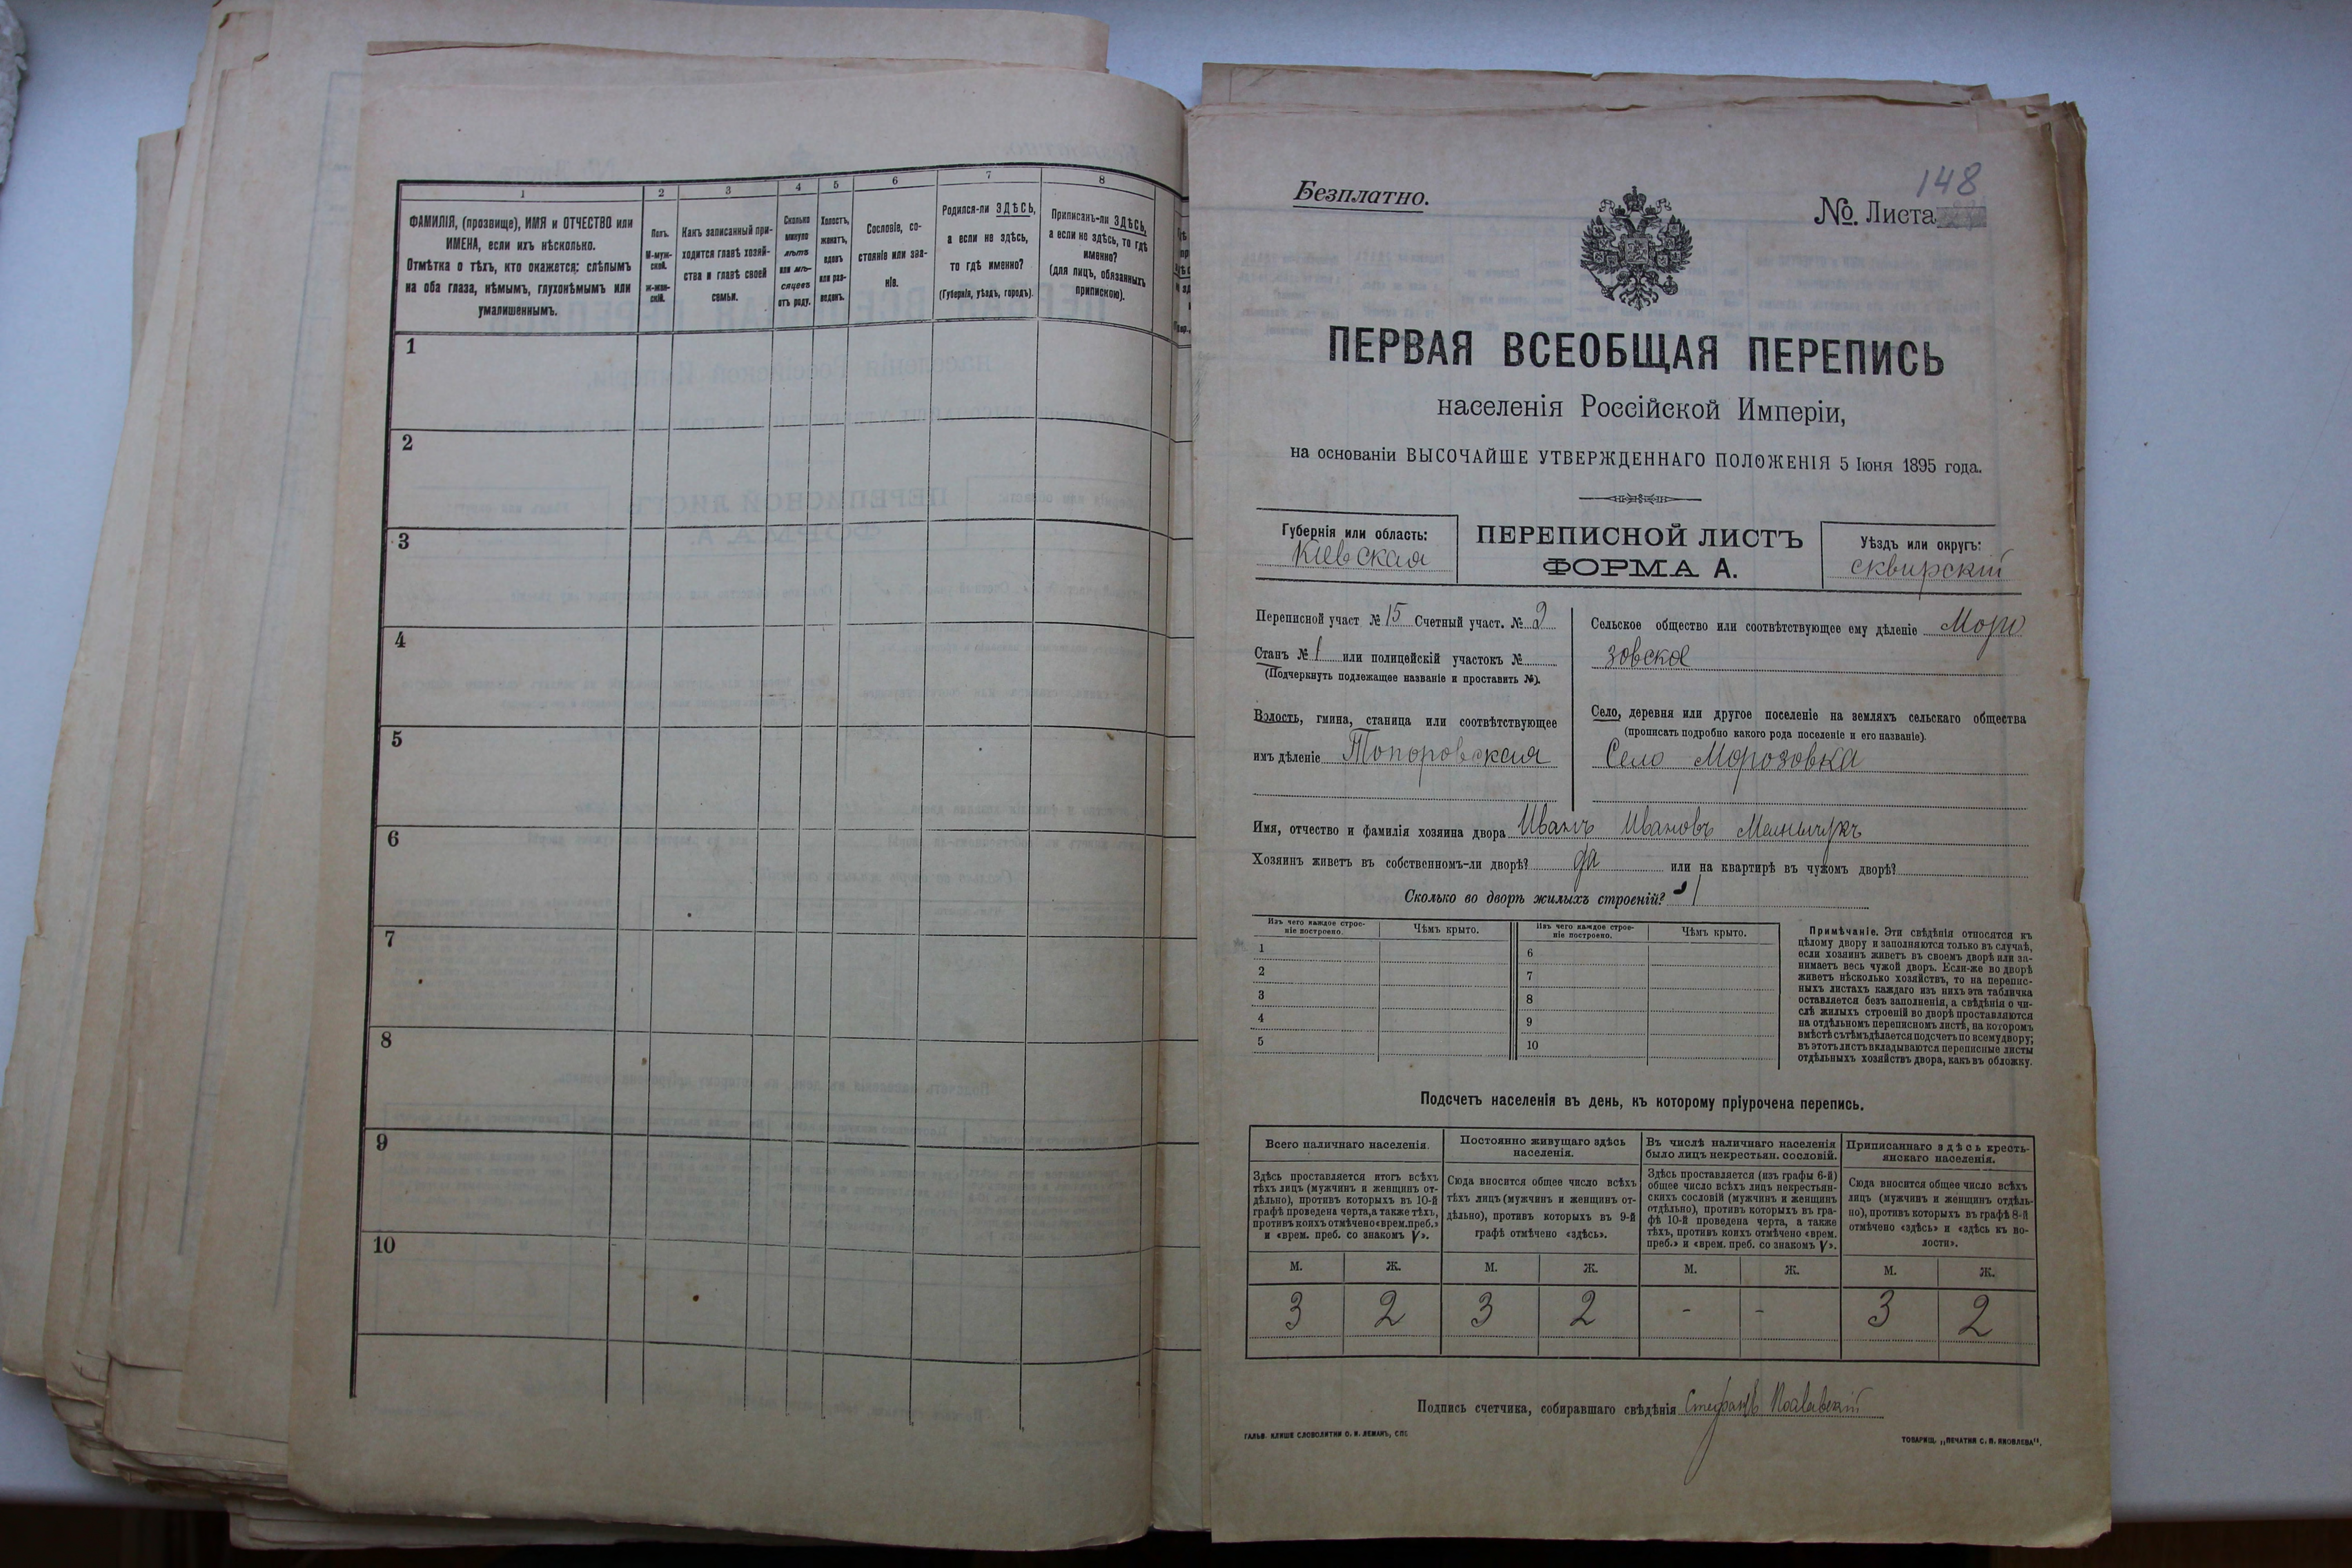 1
2
3
4
5
6
7
8
ФАМИЛІЯ, (прозвище), ИМЯ и ОТЧЕСТВО или
ИМЕНА, если ихъ нѣсколько.
Отмѣтка о тѣхъ, кто окажется: слѣпымъ
на оба глаза, нѣмымъ, глухонѣмымъ или
умалишеннымъ.
Полъ.
М-муж-
ской.
Ж-жен-
скій.
Какъ записанный при-
ходится главѣ хозяй-
ства и главѣ своей
семьи.
Сколько
минуло
лѣтъ
или мѣ-
сяцевъ
отъ роду.
Холостъ,
женатъ,
вдовъ
или раз-
веденъ.
Сословіе, со-
стояніе или зва-
ніе.
Родился-ли ЗДѢСЬ,
а если не здѣсь,
то гдѣ именно?
(Губернія, уѣздъ, городъ).
Приписанъ-ли ЗДѢСЬ,
а если не здѣсь, то гдѣ
именно?
(для лицъ, обязанныхъ
припискою).
1
2
3
4
5
6
7
8
9
10
148
Безплатно.
№ Листа
ПЕРВАЯ ВСЕОБЩАЯ ПЕРЕПИСЬ
населенія Россійской Имперіи,
на основаніи ВЫСОЧАЙШЕ УТВЕРЖДЕННАГО ПОЛОЖЕНІЯ 5 Іюня 1895 года.
Губернія или область:
Кіевская
ПЕРЕПИСНОЙ ЛИСТЪ
ФОРМА А.
Уѣздъ или округъ:
сквирскій
Переписной участ № 15 Счетный участ. № 2
Станъ № 1 или полицейскій участокъ №
(Подчеркнуть подлежащее названіе и проставить №).
Волость, гмина, станица или соотвѣтствующее
имъ дѣленіе Топоровская
Сельское общество или соотвѣтствующее ему дѣленіе Моро
зовское
Село, деревня или другое поселеніе на земляхъ сельскаго общества
(прописать подробно какого рода поселеніе и его названіе).
Село Морозовка
Имя, отчество и фамилія хозяина двора Иванъ Ивановъ Мельничукъ
Хозяинъ живетъ въ собственномъ-ли дворѣ? да или на квартирѣ въ чужомъ дворѣ?
Сколько во дворѣ жилыхъ строеній? 1
Изъ чего каждое строе-
ніе построено.
Чѣмъ крыто.
Изъ чего каждое строе-
ніе построено.
Чѣмъ крыто.
1
2
3
4
5
6
7
8
9
10
Примѣчаніе. Эти свѣдѣнія относятся къ
цѣлому двору и заполняются только въ случаѣ,
если хозяинъ живетъ въ своемъ дворѣ или за-
нимаетъ весь чужой дворъ. Если-же во дворѣ
живетъ нѣсколько хозяйствъ, то на перепис-
ныхъ листахъ каждаго изъ нихъ эта табличка
оставляется безъ заполненія, а свѣдѣнія о чи-
слѣ жилыхъ строеній во дворѣ проставляются
на отдѣльномъ переписномъ листѣ, на которомъ
вмѣстѣ съ тѣмъ дѣлается подсчетъ по всему двору;
въ этотъ листъ вкладываются переписные листы
отдѣльныхъ хозяйствъ двора, какъ въ обложку.
Подсчетъ населенія въ день, къ которому пріурочена перепись.
Всего наличнаго населенія.
Здѣсь проставляется итогъ всѣхъ
тѣхъ лицъ (мужчинъ и женщинъ от-
дѣльно), противъ которыхъ въ 10-й
графѣ проведена черта, а также тѣхъ,
противъ коихъ отмѣчено «врем. преб.»
и «врем. преб. со знакомъ V».
Постоянно живущаго здѣсь
населенія.
Сюда вносится общее число всѣхъ
тѣхъ лицъ (мужчинъ и женщинъ от-
дѣльно), противъ которыхъ въ 9-й
графѣ отмѣчено «здѣсь».
Въ числѣ наличнаго населенія
было лицъ некрестьян. сословій.
Здѣсь проставляется (изъ графы 6-й)
общее число всѣхъ лицъ некрестьян-
скихъ сословій (мужчинъ и женщинъ
отдѣльно), противъ которыхъ въ гра-
фѣ 10-й проведена черта, а также
тѣхъ, противъ коихъ отмѣчено «врем.
преб.» и «врем. преб. со знакомъ V».
Приписаннаго здѣсь кресть-
янскаго населенія.
Сюда вносится общее число всѣхъ
лицъ (мужчинъ и женщинъ отдѣль-
но), противъ которыхъ въ графѣ 8-й
отмѣчено «здѣсь» и «здѣсь къ во-
лости».
М. Ж. М. Ж. М. Ж. М. Ж.
3 2 3 2 - - 3 2
Подпись счетчика, собиравшаго свѣдѣнія Стефанъ
ГАЛЬВ. КЛИШЕ СЛОВОЛИТНИ О. И. ЛЕМАНЪ, СПБ
ТОВАРИЩ. „ПЕЧАТНЯ С. П. ЯКОВЛЕВА".